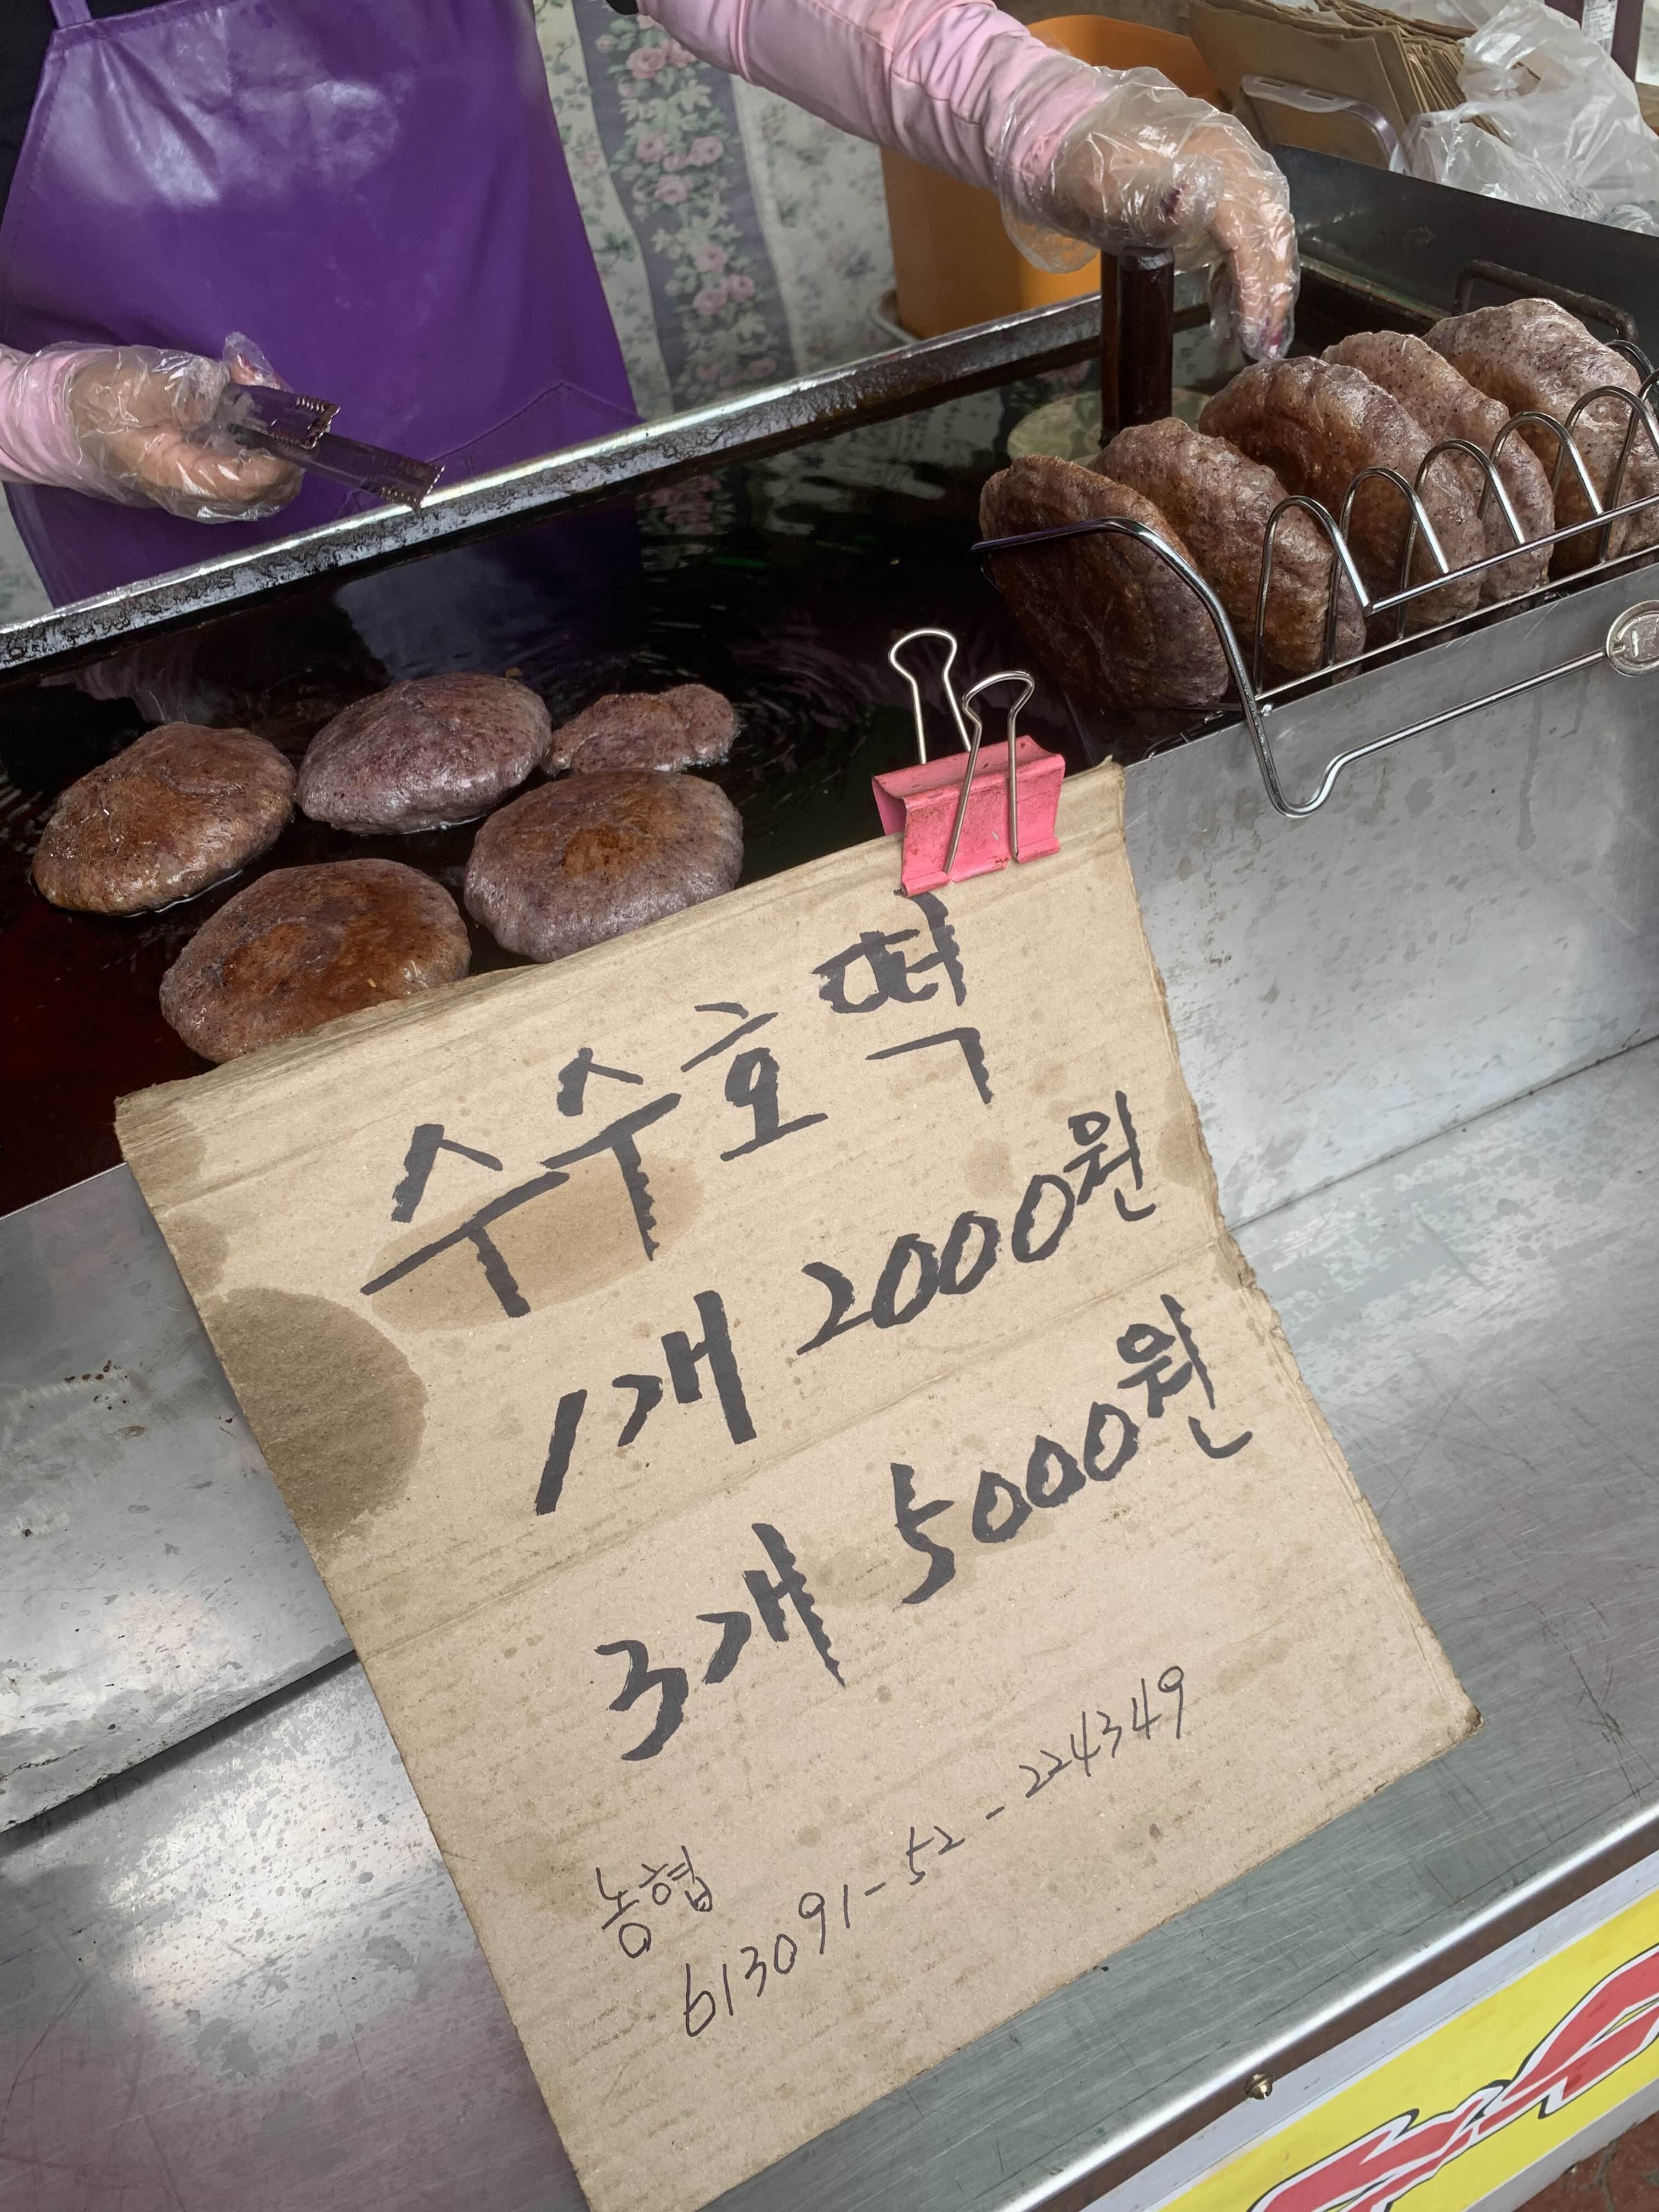 수수호떡
1개 2000원
3개 5000원
농협
613091-52-224349